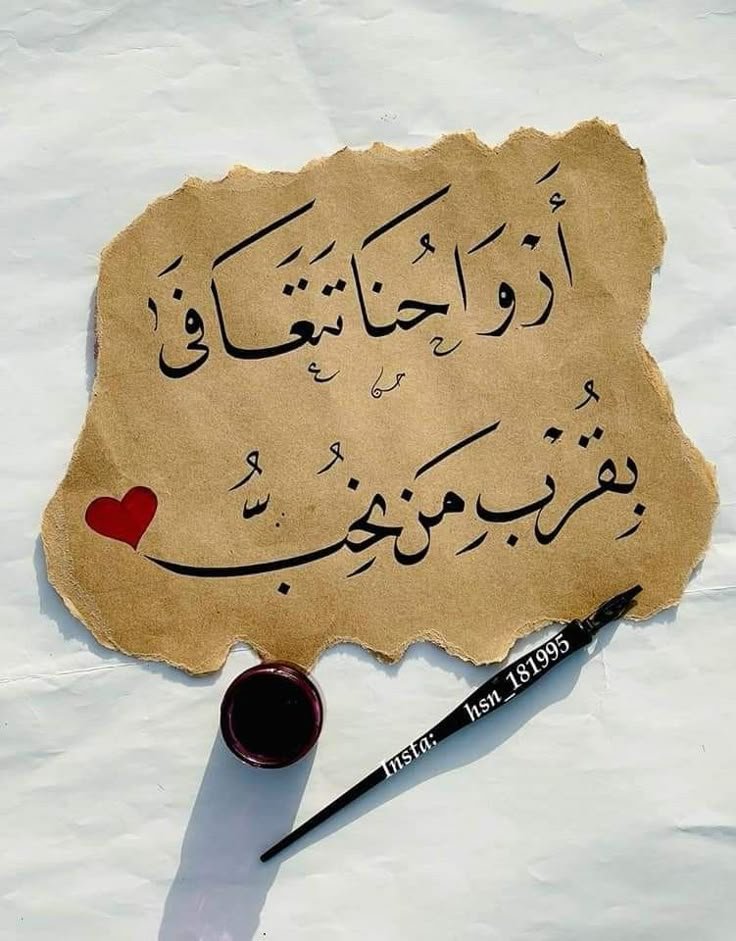 أرْواحُنا تتَعَافى
بِقُرْبِ مَن نُحِبُّ
Insta: hsn_181995